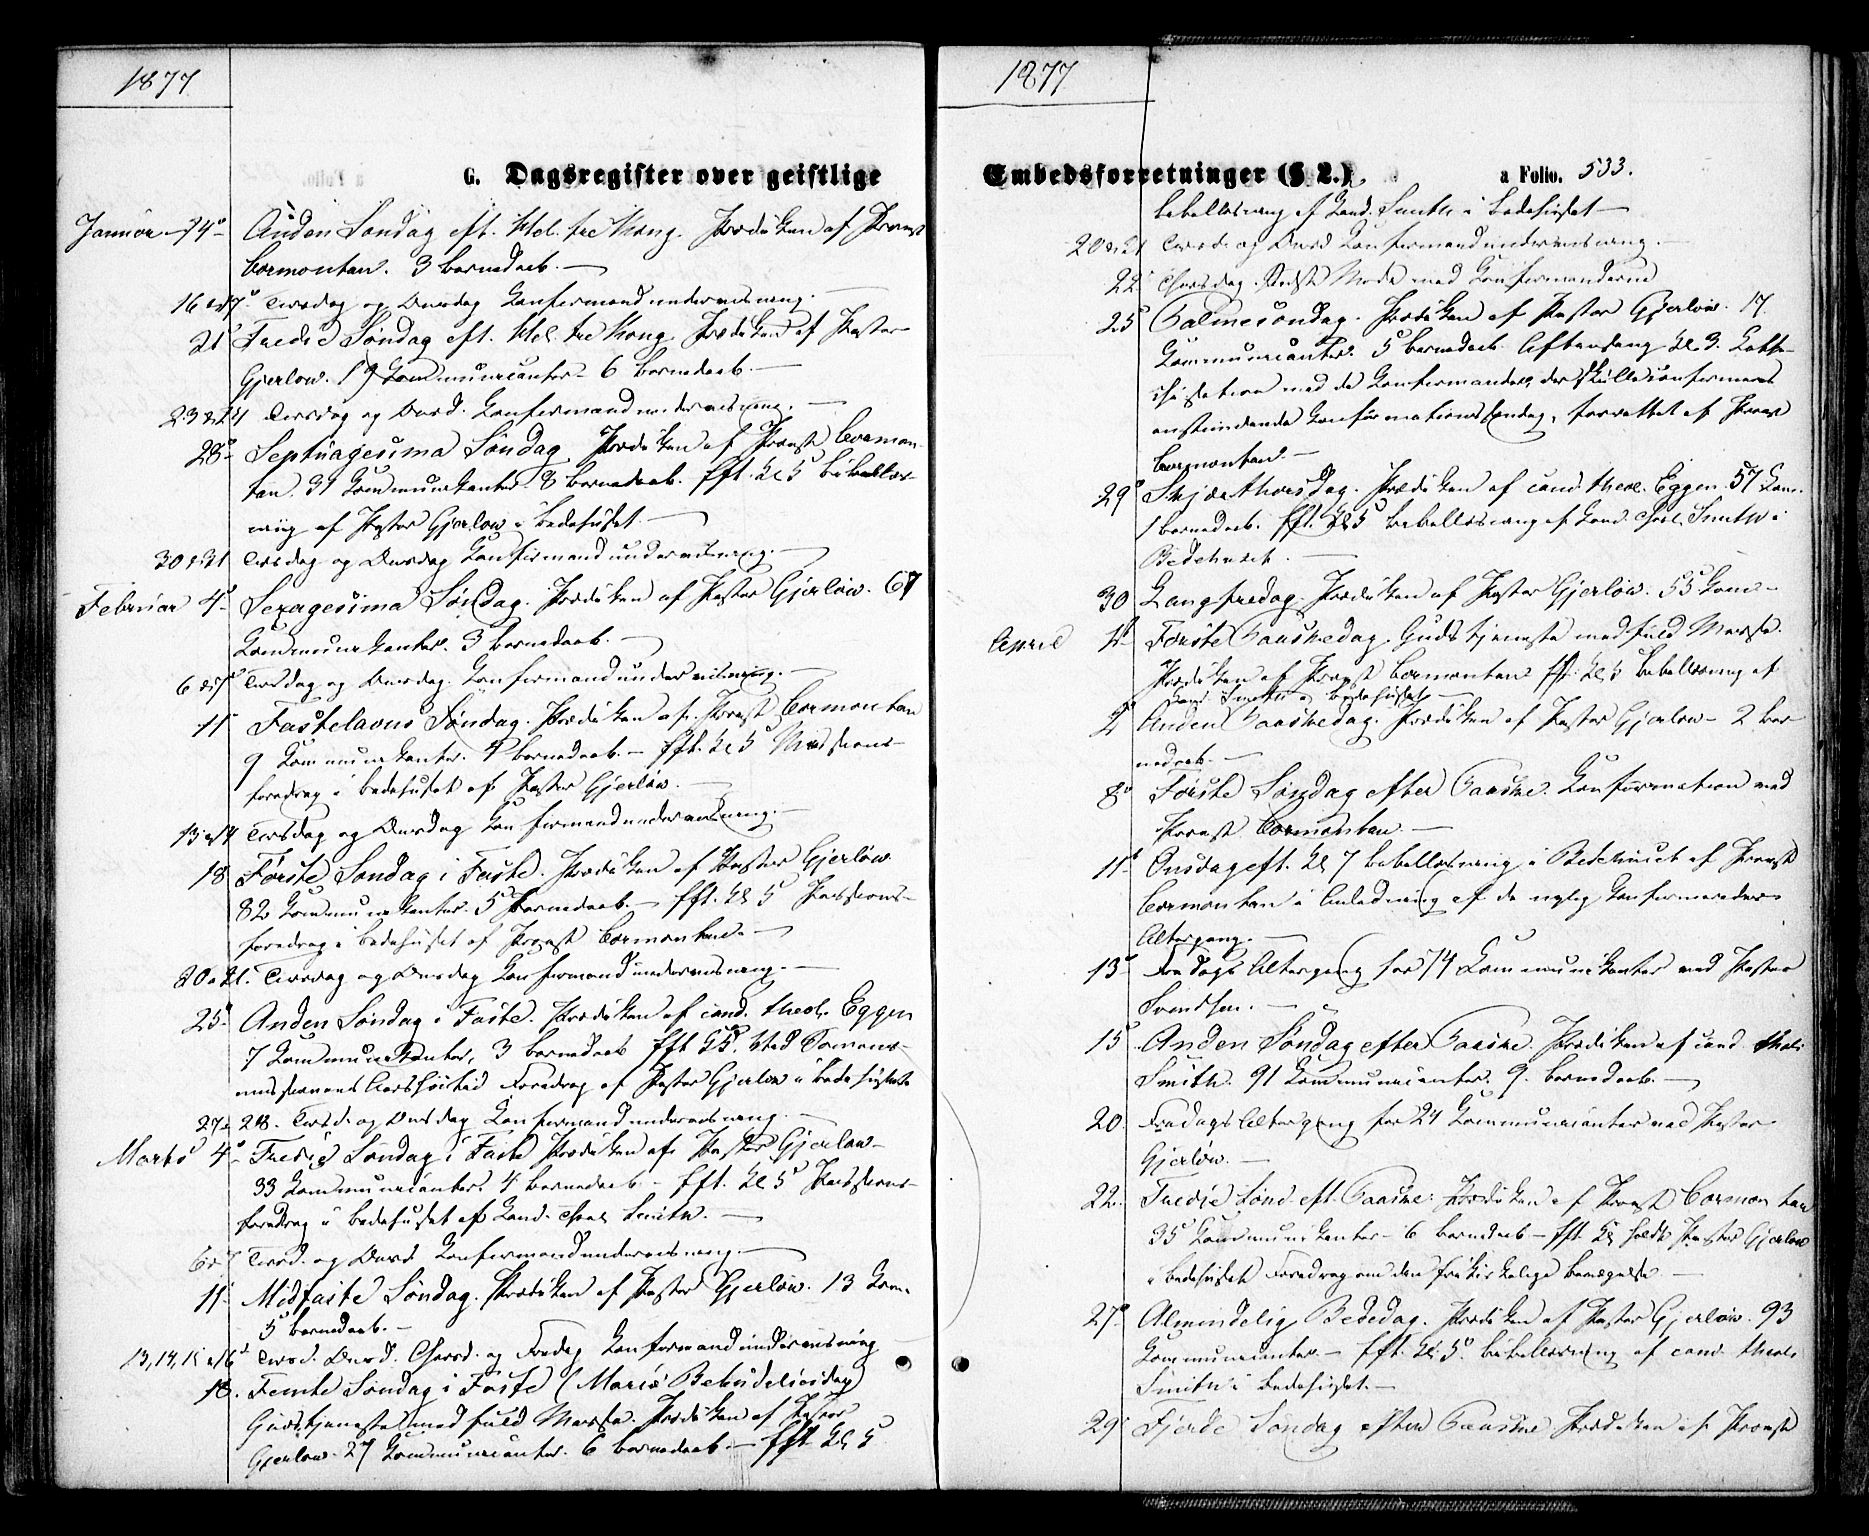 1877
G. Dagsregister over geistlige
Januar 14de Anden Søndag eft. Hel. tre Kong. Prædiken af Provst
Cormontan. 3 Barnedaab. —
16 & 17de Tirsdag og Onsdag Konfirmandundervisning. —
21de Tredie Søndag eft. Hel. tre Kong. Prædiken af Pastor
Gjerløw. 19 Kommunicanter. 6 Barnedaab. —
23 & 24 Tirsdag og Onsd. Konfirmandundervisning. —
28de Septuagesima Søndag. Prædiken af Provst Cormon-
tan. 31 Kommunikanter. 8 Barnedaab. Eft. Kl 5 Bibellæs-
ning af Pastor Gjerløw i Bedehuset. —
30 & 31 Tirsdag og Onsdag Konfirmandundervisning. —
Februar 4de Sexagesima Søndag. Prædiken af Pastor Gjerløw. 67
Kommunikanter. 3 Barnedaab. —
6 & 7de Tirsdag og Onsdag. Konfirmandundervisning. —
11te Fastelavns Søndag. Prædiken af Provst Cormontan
9 Kommunikanter. 4 Barnedaab. — Eft. Kl 5 Missions-
foredrag i Bedehuset af Pastor Gjerløw. —
13 & 14 Tirsdag og Onsdag Konfirmandundervisning. —
18 Første Søndag i Faste. Prædiken af Pastor Gjerløw
82 Kommunikanter. 5 Barnedaab. — Eft. Kl 5 Passions-
foredrag i Bedehuset af Provst Cormontan. —
20 & 21. Tirsdag og Onsdag Konfirmandundervisning. —
25de Anden Søndag i Faste. Prædiken af cand. theol. Eggen
7 Kommunikanter, 3 Barnedaab Eft Kl 5. Ved Sømans-
missionens Aarshøitid Foredrag af Pastor Gjerløw i Bedehuset
27 & 28. Tirsd. og Onsdag Konfirmandundervisning. —
Marts 4de Tredie Søndag i Faste Prædiken af Pastor Gjerløw
33 Kommunicanter. 4 Barnedaab — Eft. Kl 5 Passions-
foredrag i Bedehuset af Cand. theol Smith. —
6 & 7 Tirsd. og Onsd Konfirmandundervisning. —
11te Midfaste Søndag. Prædiken af Pastor Gjerløw. 13 Kom.
5 Barnedaab. —
13, 14, 15 & 16de Tirsd. Onsd. Thorsd. og Fredag Konfirmandundervisning
18. Femte Søndag i Faste (Mariæ Bebudelsesdag)
Gudstjeneste med fuld Messe. Prædiken af Pastor
Gjerløw. 27 Kommunicanter. 6 Barnedaab. — Eft Kl 5
1877
Embedsforretninger (§ 2.) a Folio. 533.
Bibellæsning af Cand. Smith i Bedehuset —
20 & 21 Tirsd. og Onsd Konfirmandundervisning. —
22 Thorsdag. Sidste Møde med Konfirmanderne
25 Palmesøndag. Prædiken af Pastor Gjerløw. 17
Kommunicanter. 5 Barnedaab. Aftensang Kl 3. Kate-
chisation med de Konfirmander, der skulle confirmeres
anstundende Konfirmationssøndag, forrettet af Provst
Cormontan. —
29de Skjærthorsdag. Prædiken af cand. theol. Eggen. 57 Kom.
1 Barnedaab. Eft. Kl 5 Bibellæsning af Cand. theol. Smith i
Bedehuset. —
30 Langfredag. Prædiken af Pastor Gjerløw. 55 Kom —
April 1ste Første Paaskedag. Gudstjeneste med fuld Messe.
Prædiken af Provst Cormontan Eft. Kl 5 Bibellæsning af
Cand. Smith i Bedehuset —
2den Anden Paaskedag. Prædiken af Pastor Gjerløw — 2 Bar-
nedaab. —
8de Første Søndag efter Paaske. Konfirmation ved
Provst Cormontan. —
11te Onsdag eft. Kl 7 Bibellæsning i Bedehuset af Provst
Cormontan i Anledning af de nylig Konfirmeredes
Altergang. —
13de Fredags Altergang for 74 Kommunikanter ved Pastor
Svendsen. —
15de Anden Søndag efter Paaske. Prædiken af cand. theol.
Smith. 91 Kommunicanter. 9. Barnedaab. —
20. Fredags Altergang for 24 Kommunicanter ved Pastor
Gjerløw. —
22. Tredie Sønd. eft. Paaske. Prædiken af Provst Cormontan
35 Kommunikanter — 6 Barnedaab — Eft. Kl holdt Pastor Gjerløw
i Bedehuset Foredrag om den frikirkelige Bevægelse —
27de Almindelig Bededag. Prædiken af Pastor Gjerløw. 93
Kommunicanter — Eft. Kl 5. Bibellæsning af cand. theol.
Smith i Bedehuset. —
29de Fjerde Søndag efter Paaske Prædiken af Provst